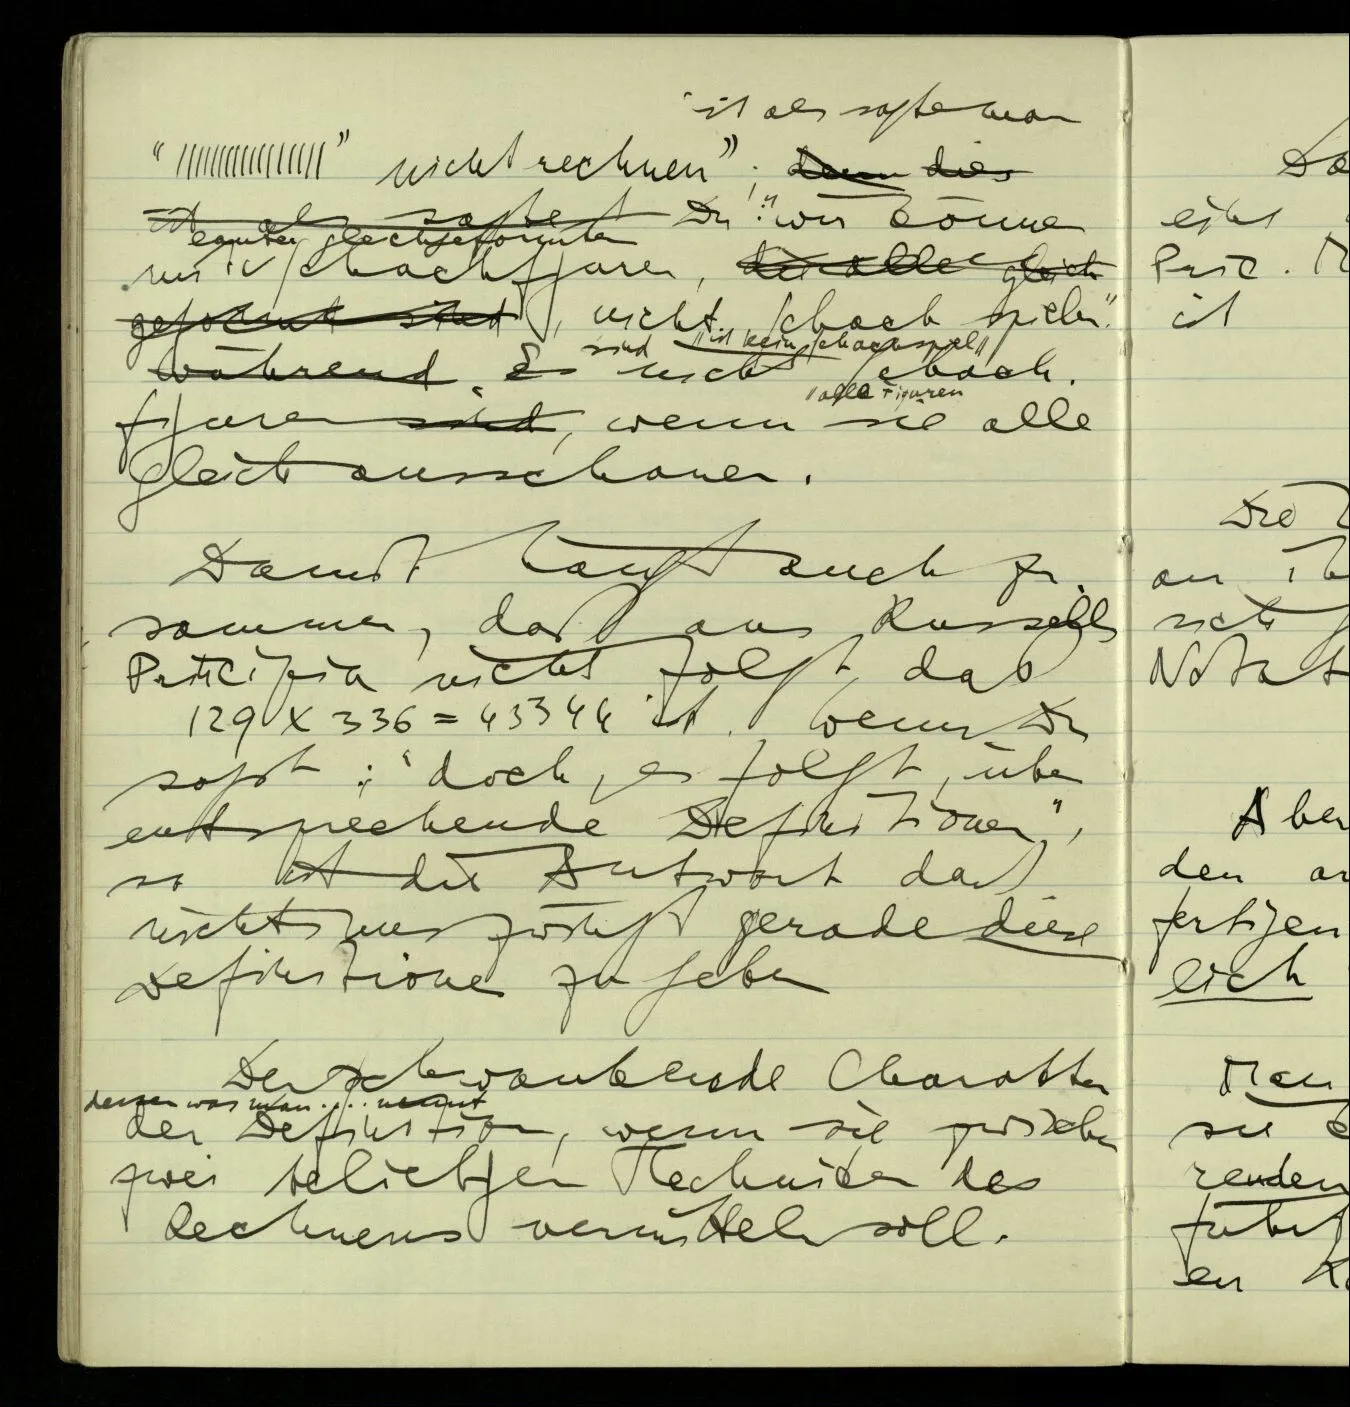 ist als sagte man
“||||||||||||||||” nicht rechnen”; denn dies
ist als sagte Du: “wir können
gleichgeformten
mit Schachfiguren, die alle gleich
geformt sind, nicht Schach spielen.”
sind „ist kein Schachspiel”
während Es nicht Schach.
„alle Figuren
figuren sind, wenn sie alle
gleich ausschauen.
Damit hängt auch zu-
sammen, daß aus Russells
Principia nicht folgt, daß
129 X 336 = 43344 ist. wenn Du
sagst: “doch, es folgt, über
entsprechende Definitionen”,
so ist die Antwort daß
nichts uns zwingt gerade diese
Definitionen zu geben
Der schwankende Charakter
dessen was man .... nennt
der Definition, wenn sie zwischen
zwei beliebigen Techniken des
Rechnens vermitteln soll.
eine
Princ.
ist
Die
an
sich
Aber
den
fertigen
lich
Man
sie